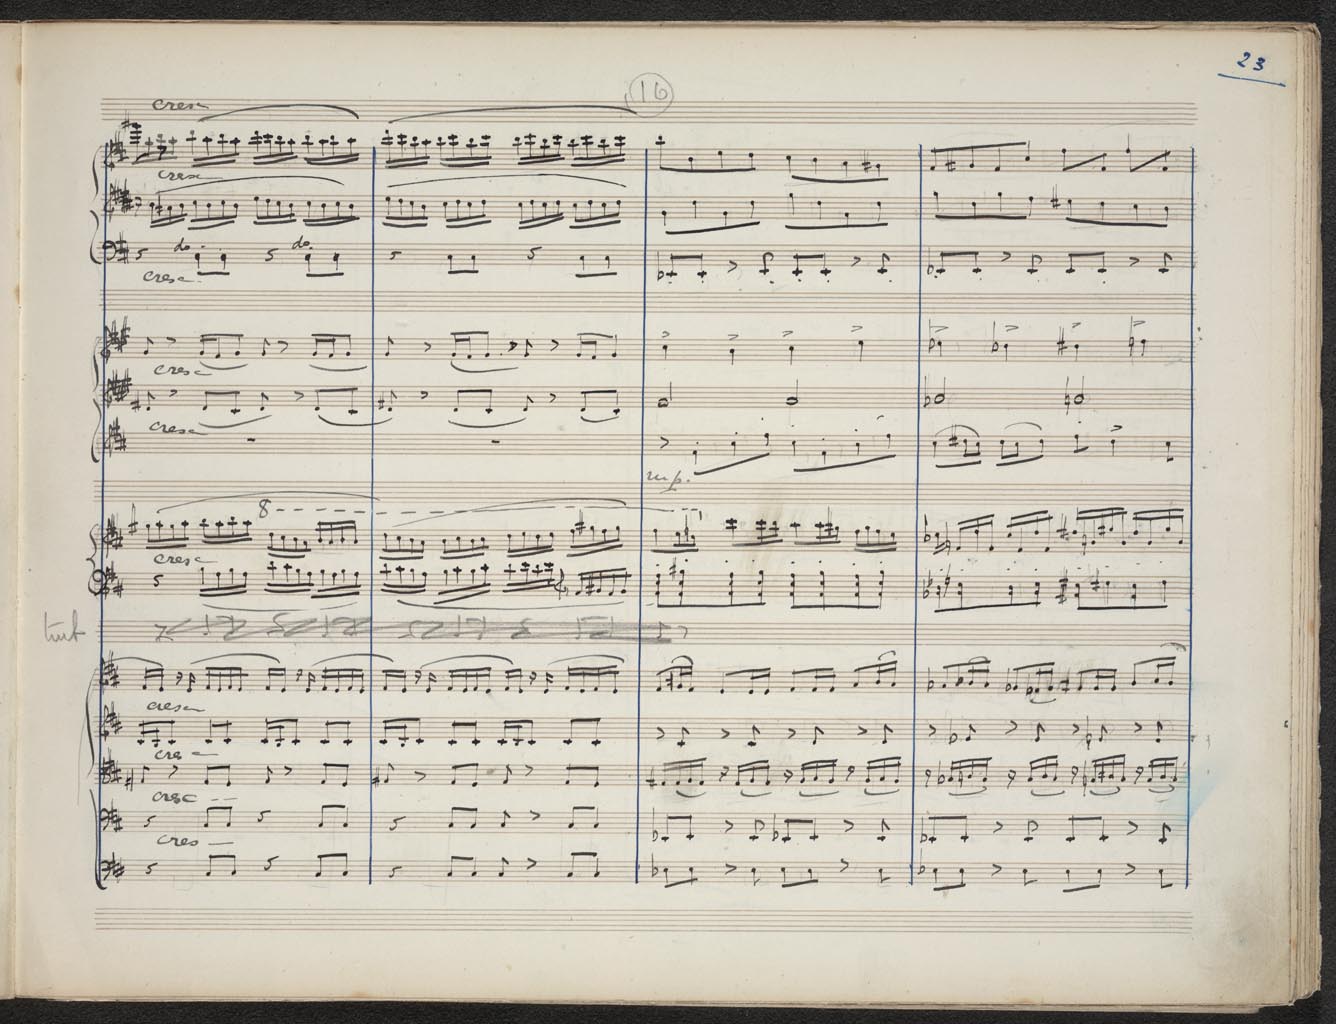 23
16
cresc
cresc
do do
cresc
cresc
cresc
mp.
8
cresc
cresc
cresc
cresc
cres